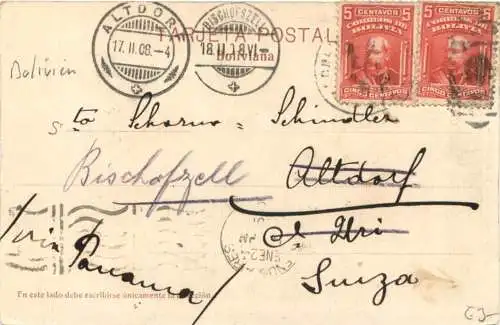 ALTDORF
17.II.08.-4
BISCHOFSZELL
18.II.08.VI-
TARJETA POSTAL
Boliviana
5 CENTAVOS 5
CORREOS DE
BOLIVIA
CINCO CENTAVOS
5 CENTAVOS 5
CORREOS DE
BOLIVIA
CINCO CENTAVOS
Bolivien
Schorno-Schindler
Bischofzell
Altdorf
Uri
Suiza
via Panama
ENE24
En este lado debe escribirse únicamente la dirección